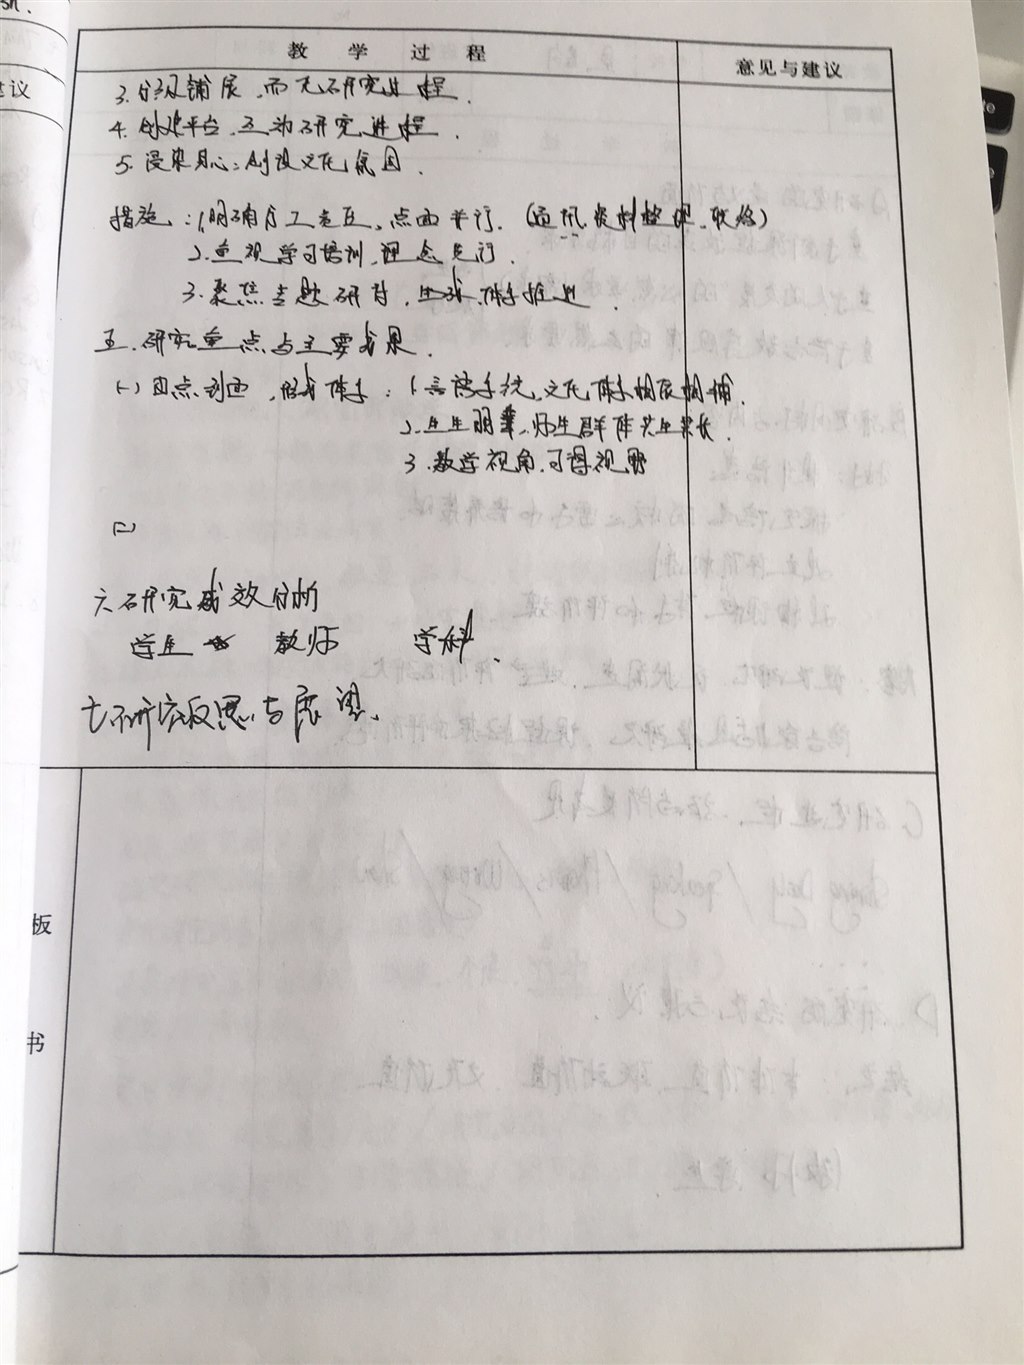 教 学 过 程
意见与建议
议
3. 分级铺展，而无研究进程.
4. 创建平台，互动研究进程.
5. 浸染身心：创设文化氛围.
措施：1.明确分工交互，点面并行.（通讯，资料整理，联络）
2.重视学习培训，理念先行.
3.聚焦专题研讨，生成，体系推进
五.研究重点与主要成果.
(一)由点到面，形成体系：1.言语系统，文化体系相辰相辅.
2.生生朋辈，师生群体共生共长.
3.教学视角，可得视野
(二)
六.研究成效分析
学生 教师 学科.
七.研究反思与展望.
板
书